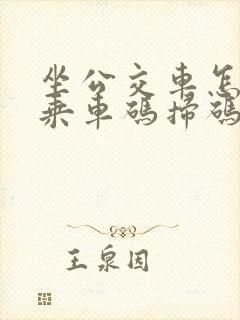 坐公交車怎
乘車碼掃碼
王泉因